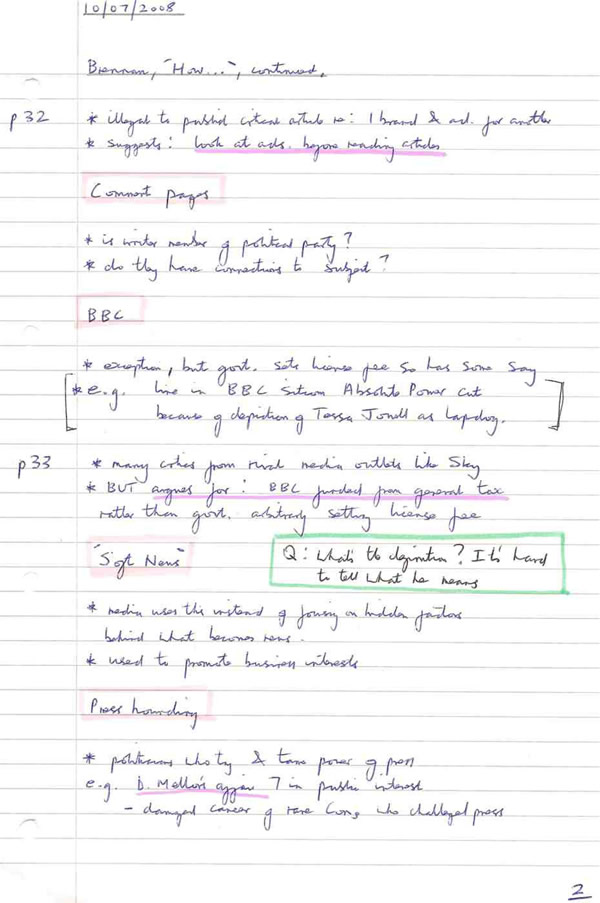 10/07/2008
Brennan, "How...", continued.
p32
* illegal to publish critical article re: 1 brand & ad. for another
* suggests: look at ads. before reading articles
Comment pages
* is writer member of political party?
* do they have connections to subject?
BBC
* exception, but govt. sets license fee so has some say
* e.g. line in BBC Sitcom Absolute Power cut
because of depiction of Tessa Jowell as lapdog.
p33
* many critics from rival media outlets like Sky
* BUT argues for: BBC funded from general tax
rather than govt. arbitrarily setting license fee
"Soft News"
Q: What's the definition? It's hard
to tell what he means
* media uses this instead of focusing on hidden factors
behind what becomes news.
* used to promote business interests
Press hounding
* politicians who try & tame power of press
e.g. D. Mellor's affair in public interest
- damaged career of rare Con. who challenged press
2